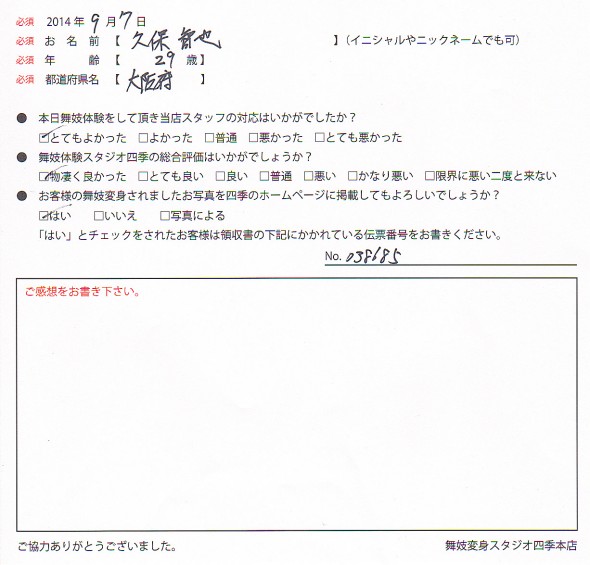 必須 2014年 9月 7日
必須 お名前【 久保 智也 】(イニシャルやニックネームでも可)
必須 年 齢【 29 歳】
必須 都道府県名【 大阪府 】
● 本日舞妓体験をして頂き当店スタッフの対応はいかがでしたか?
☑とてもよかった □よかった □普通 □悪かった □とても悪かった
● 舞妓体験スタジオ四季の総合評価はいかがでしょうか?
☑物凄く良かった □とても良い □良い □普通 □悪い □かなり悪い □限界に悪い二度と来ない
● お客様の舞妓変身されましたお写真を四季のホームページに掲載してもよろしいでしょうか?
☑はい □いいえ □写真による
「はい」とチェックをされたお客様は領収書の下記にかかれている伝票番号をお書きください。
No. 038685
ご感想をお書き下さい。
ご協力ありがとうございました。 舞妓変身スタジオ四季本店